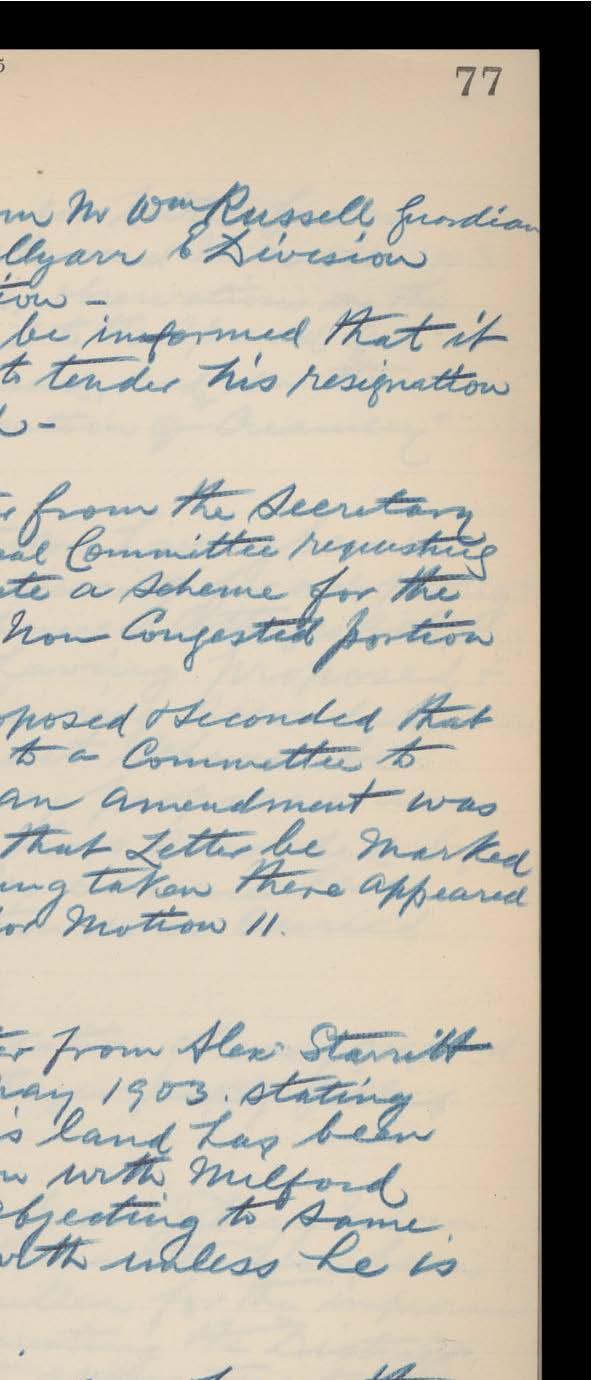 77
m Mr Wm Russell Guardian
llyarr E Division
tion -
be informed that it
to tender his resignation
d -
from the Secretary
al Committee requesting
ate a Scheme for the
Non Congested portion
oposed & seconded that
to a Committee to
an amendment was
that Letter be Marked
ing taken there appeared
for Motion 11.
er from Alex Starritt
May 1903. stating
is land has been
n with Milford
objecting to same
with unless he is